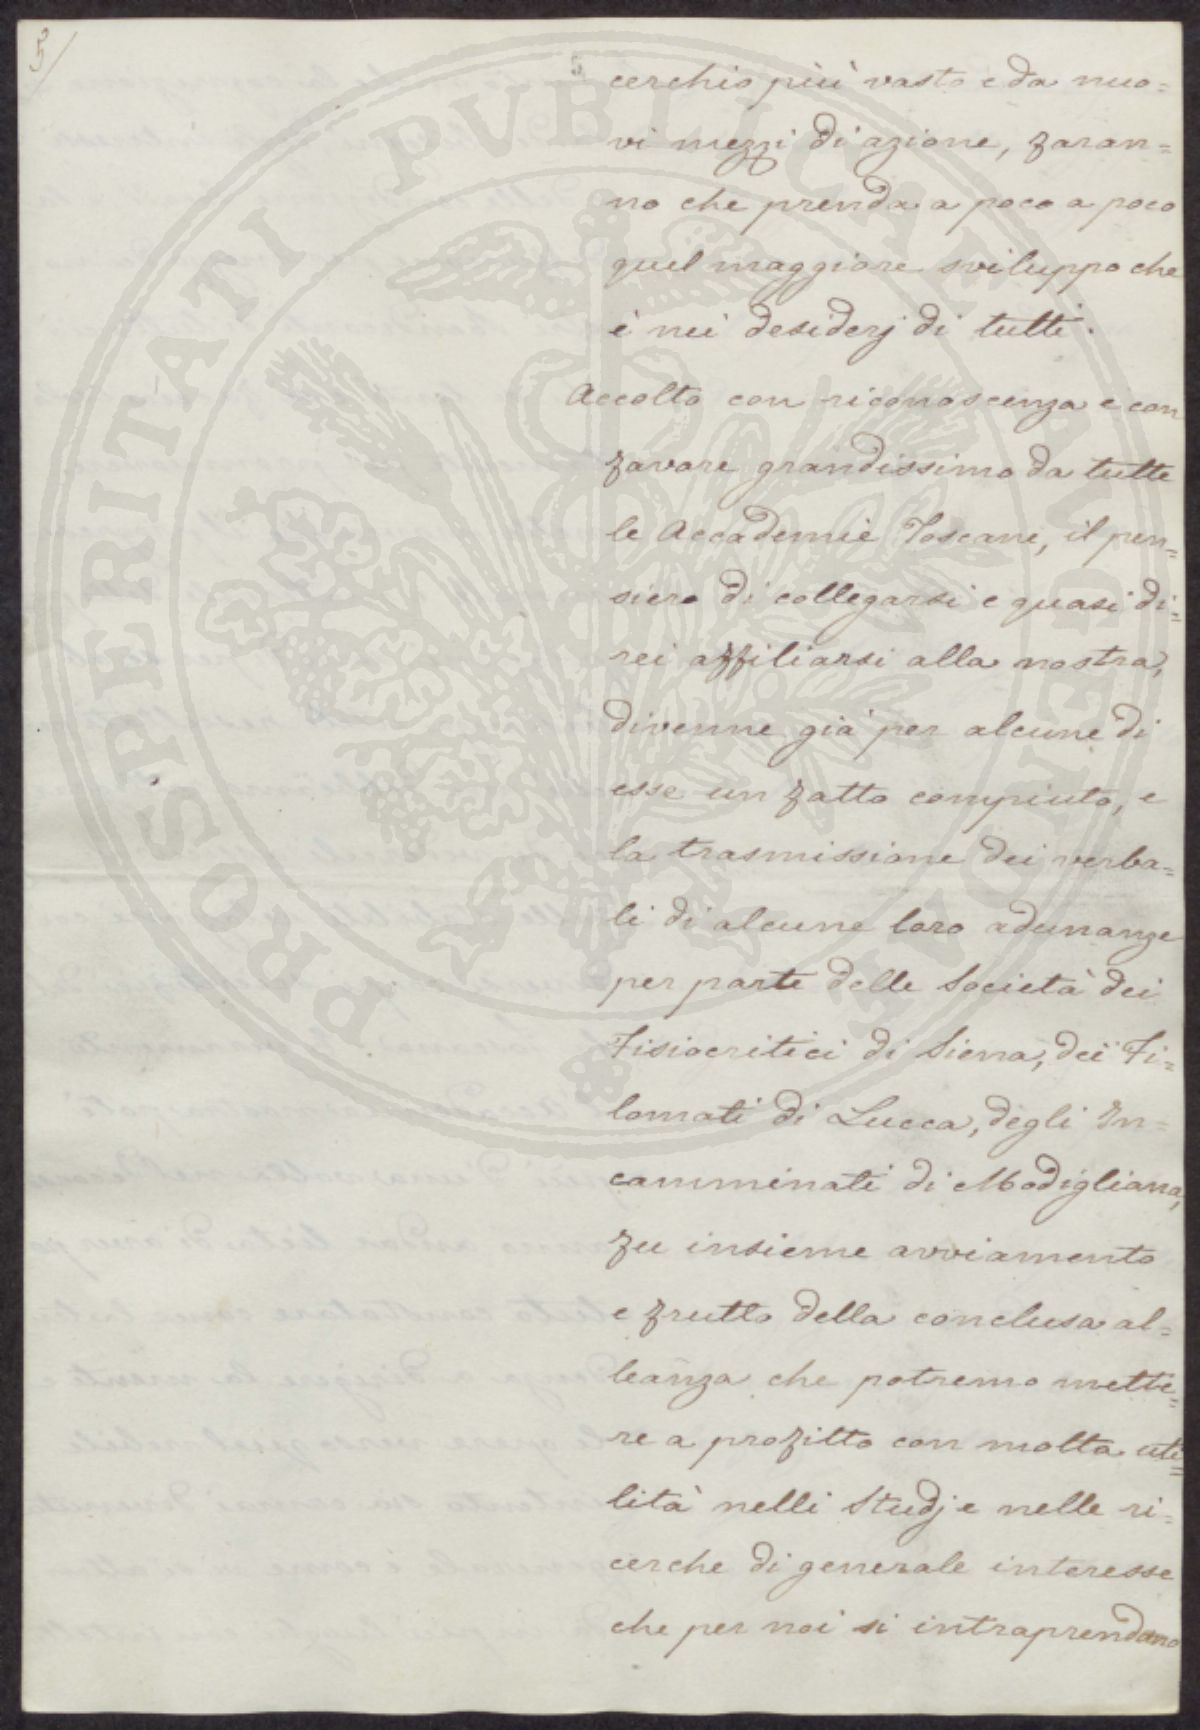 5
5
cerchio più vasto e da nuo=
vi mezzi di azione, faran=
no che prenda a poco a poco
quel maggiore sviluppo che
è nei desiderj di tutti.
Accolto con riconoscenza e con
favore grandissimo da tutte
le Accademie Toscane, il pen=
siero di collegarsi e quasi di=
rei affiliarsi alla nostra,
divenne già per alcune di
esse un fatto compiuto, e
la trasmissione dei verba=
li di alcune loro adunanze
per parte delle Società dei
Fisiocritici di Siena, dei Fi=
lomati di Lucca, degli In=
camminati di Modigliana,
fu insieme avviamento
e frutto della conclusa al=
leanza che potremo mette=
re a profitto con molta uti=
lità nelli Studj e nelle ri=
cerche di generale interesse
che per noi si intraprendano
PROSPERITATI PUBLICAE AUGENDAE